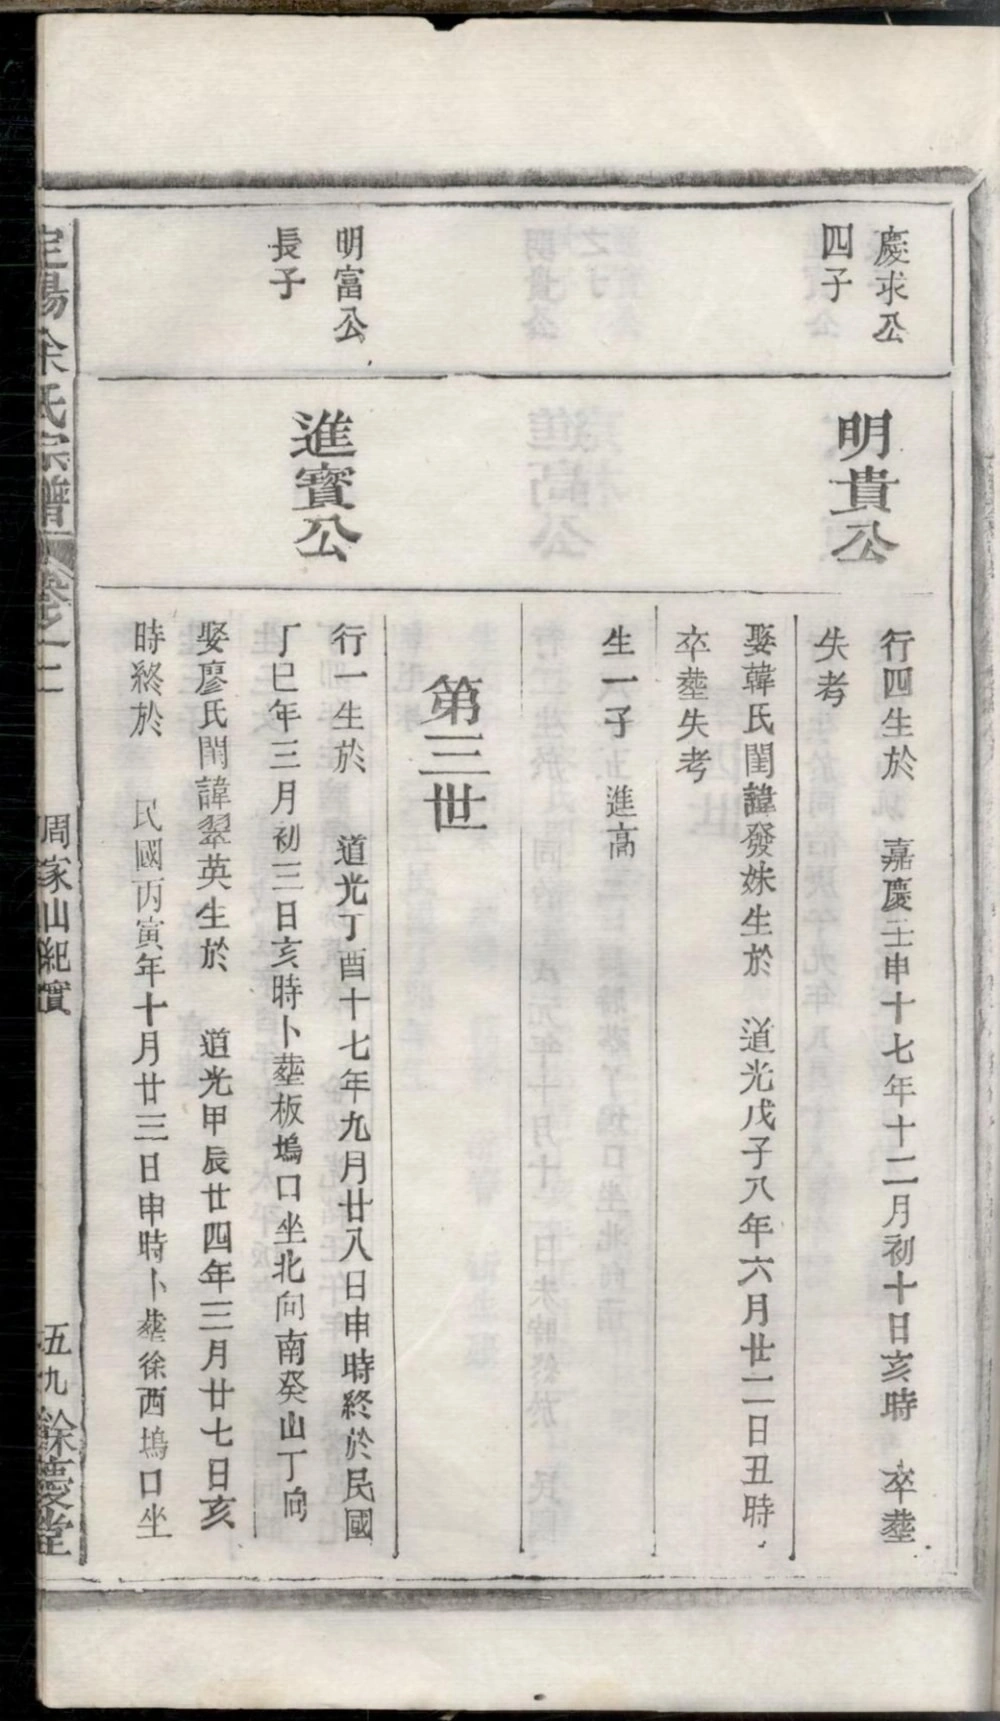 慶求公
四子
明貴公
行四生於 嘉慶壬申十七年十二月初十日亥時 卒塟
失考
娶韓氏閨諱發妹生於 道光戊子八年六月廿二日丑時
卒塟失考
生一子 進高
第三世
明富公
長子
進寳公
行一生於 道光丁酉十七年九月廿八日申時終於民國
丁巳年三月初三日亥時卜塟板塢口坐北向南癸山丁向
娶廖氏閨諱翠英生於 道光甲辰廿四年三月廿七日亥
時終於 民國丙寅年十月廿三日申時卜塟徐西塢口坐
定陽余氏宗譜 卷之二
周家山紀實
五九 餘慶堂